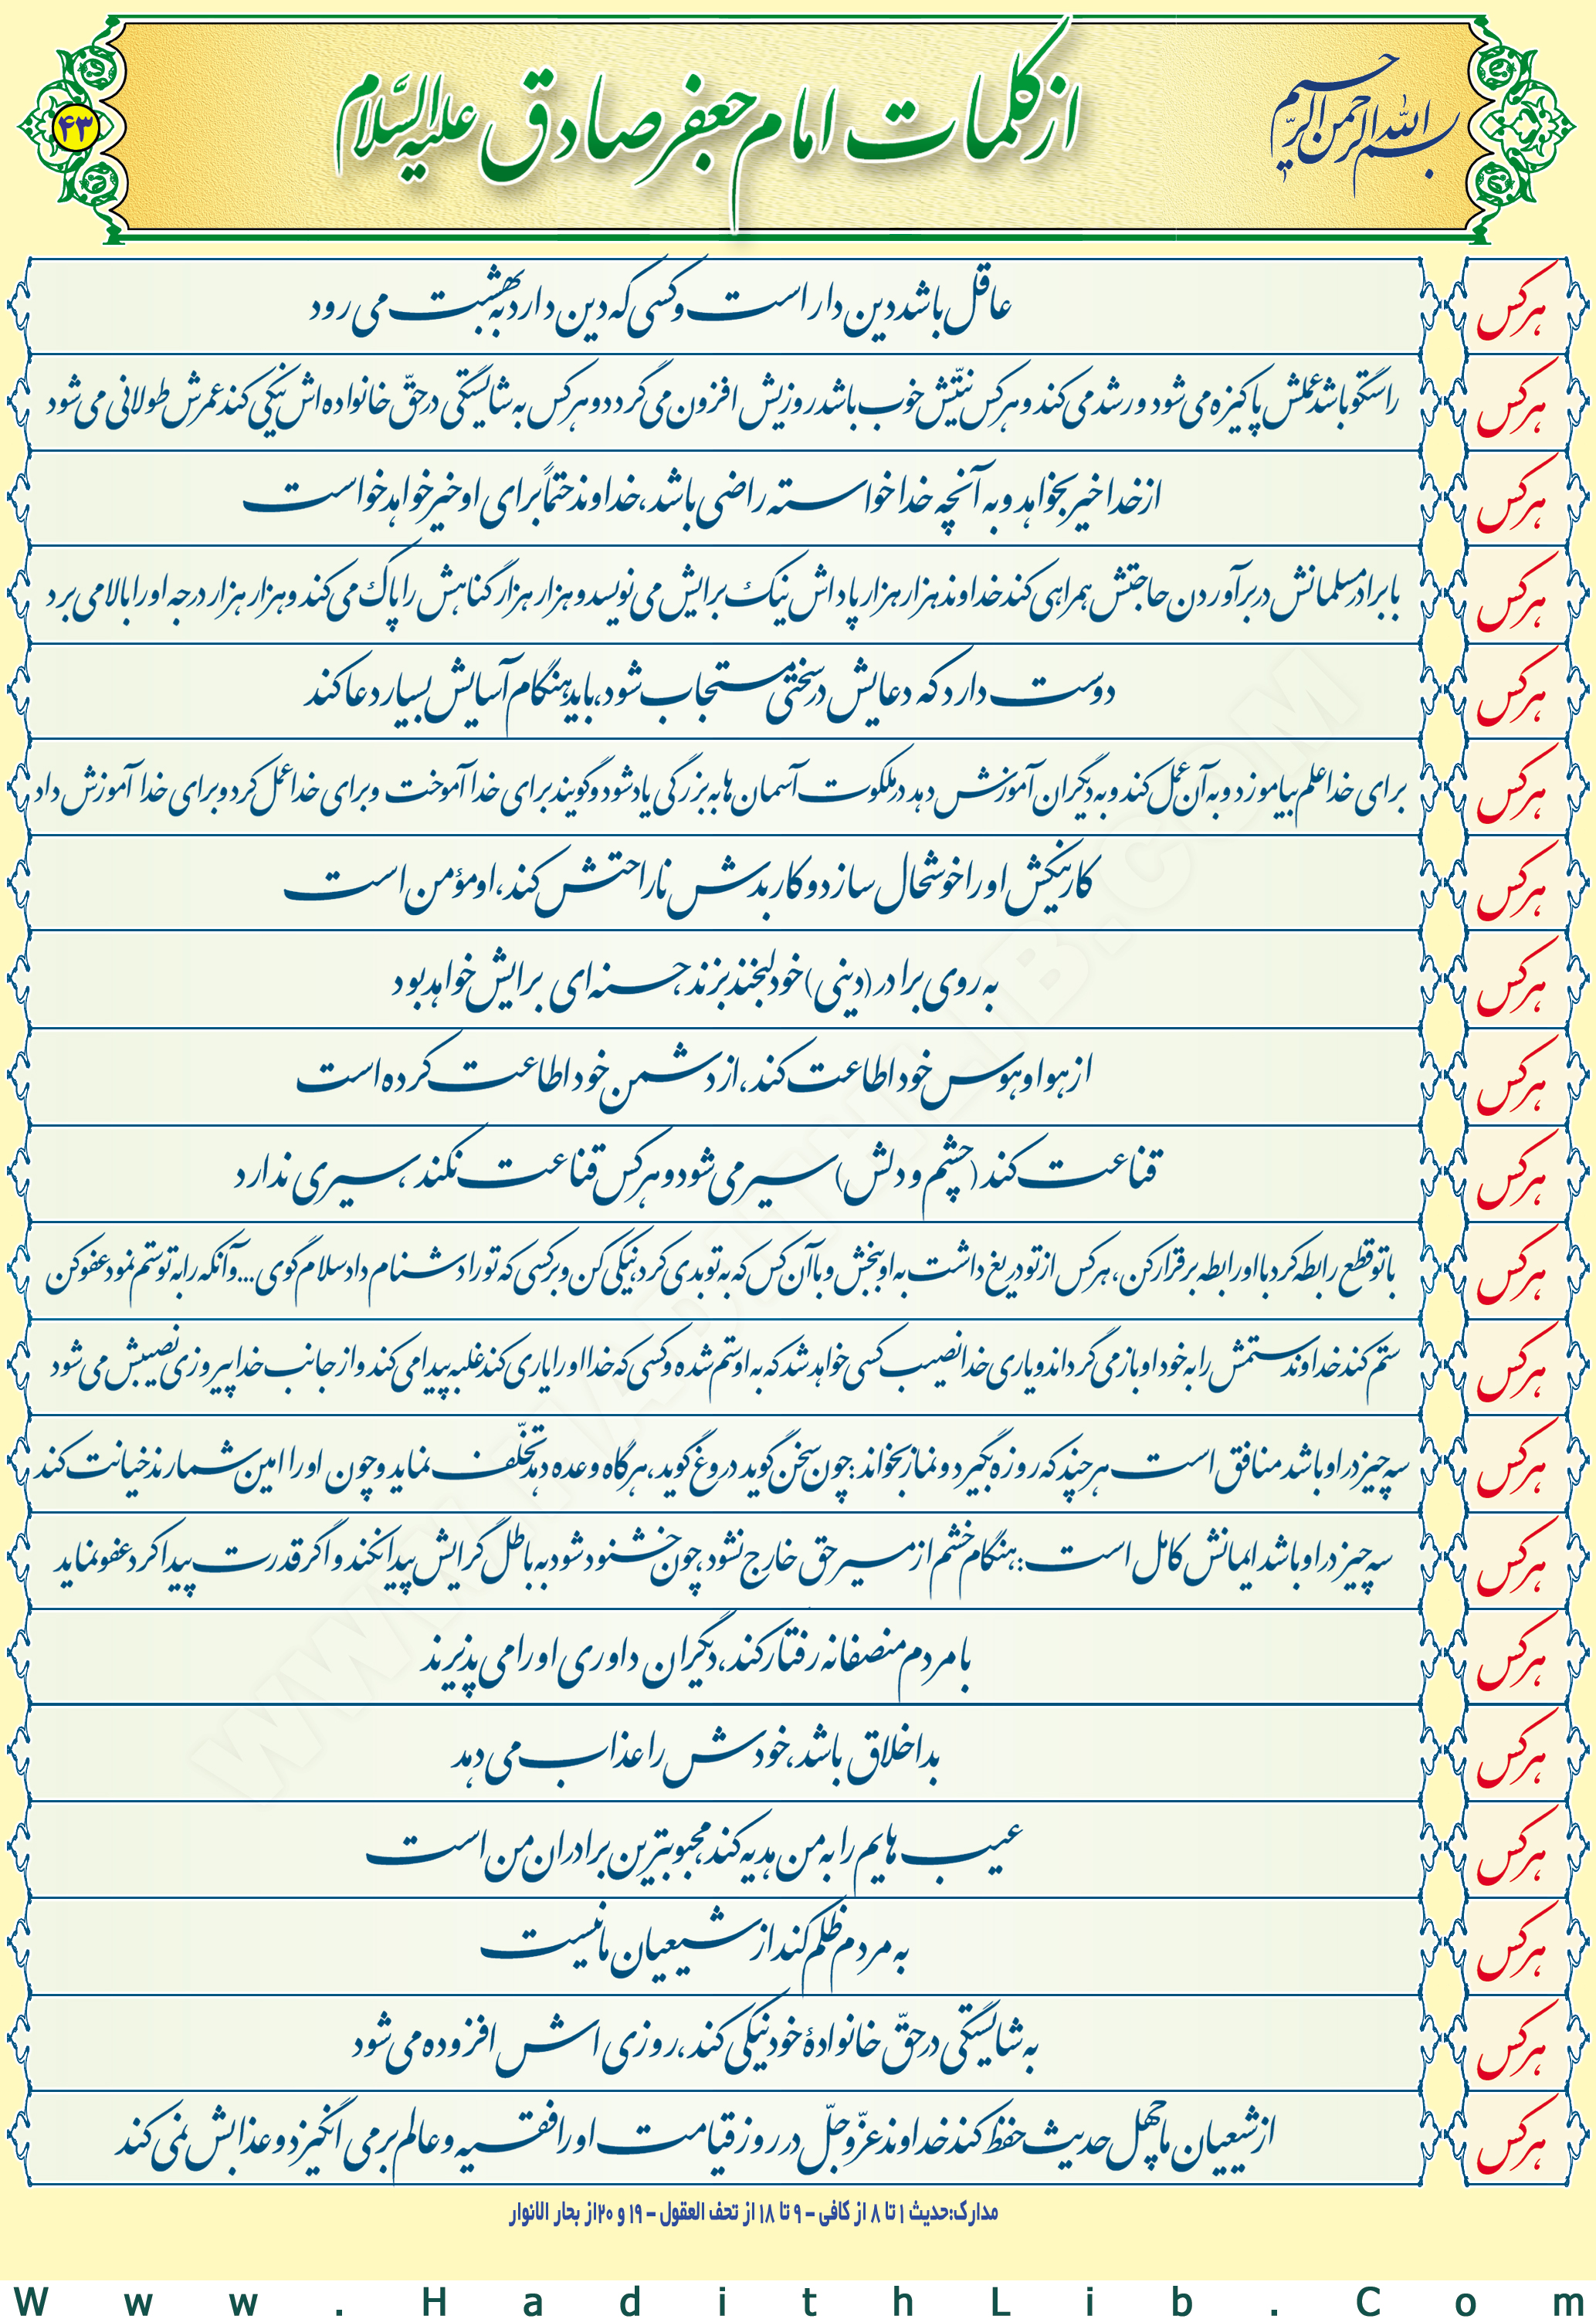 بسم الله الرحمن الرحیم
از کلمات امام جعفر صادق علیه السّلام
۴۳
هرکس عاقل باشد دین دار است و کسی که دین دارد به بهشت می رود
هرکس راستگو باشد عملش پاکیزه می شود و رشد می کند و هرکس نیّتش خوب باشد روزیش افزون می گردد و هرکس به شایستگی در حقّ خانواده اش نیکی کند عمرش طولانی می شود
هرکس از خدا خیر بخواهد و به آنچه خدا خواسته راضی باشد، خداوند حتماً برای او خیر خواهد خواست
هرکس با برادر مسلمانش در برآوردن حاجتش همراهی کند خداوند هزار هزار پاداش نیک برایش می نویسد و هزار هزار گناهش را پاک می کند و هزار هزار درجه او را بالا می برد
هرکس دوست دارد که دعایش در سختی مستجاب شود، باید هنگام آسایش بسیار دعا کند
هرکس برای خدا علم بیاموزد و به آن عمل کند و به دیگران آموزش دهد در ملکوت آسمان ها به بزرگی یاد شود و گویند برای خدا آموخت و برای خدا عمل کرد و برای خدا آموزش داد
هرکس کار نیکش او را خوشحال سازد و کار بدش ناراحتش کند، او مؤمن است
هرکس به روی برادر (دینی) خود لبخند بزند، حسنه ای برایش خواهد بود
هرکس از هوا و هوس خود اطاعت کند، از دشمن خود اطاعت کرده است
هرکس قناعت کند (چشم و دلش) سیر می شود و هرکس قناعت نکند، سیری ندارد
هرکس با تو قطع رابطه کرد با او رابطه برقرار کن، هرکس از تو دریغ داشت به او ببخش و با آن کس که به تو بدی کرد، نیکی کن و بر کسی که تو را دشنام داد سلام گوی ... و آنکه را به تو ستم نمود عفو کن
هرکس ستم کند خداوند ستمش را به خود او باز می گرداند و یاری خدا نصیب کسی خواهد شد که به او ستم شده و کسی که خدا او را یاری کند غلبه پیدا می کند و از جانب خدا پیروزی نصیبش می شود
هرکس سه چیز در او باشد منافق است هر چند که روزه بگیرد و نماز بخواند: چون سخن گوید دروغ گوید، هرگاه وعده دهد تخلّف نماید و چون او را امین شمارند خیانت کند
هرکس سه چیز در او باشد ایمانش کامل است: هنگام خشم از مسیر حق خارج نشود، چون خشنود شود به باطل گرایش پیدا نکند و اگر قدرت پیدا کرد عفو نماید
هرکس با مردم منصفانه رفتار کند، دیگران داوری او را می پذیرند
هرکس بد اخلاق باشد، خودش را عذاب می دهد
هرکس عیب هایم را به من هدیه کند، محبوبترین برادران من است
هرکس به مردم ظلم کند از شیعیان ما نیست
هرکس به شایستگی در حقّ خانوادهٔ خود نیکی کند، روزی اش افزوده می شود
هرکس از شیعیان ما چهل حدیث حفظ کند خداوند عزّ و جلّ در روز قیامت او را فقیه و عالم بر می انگیزد و عذابش نمی کند
مدارک:حدیث ۱ تا ۸ از کافی – ۹ تا ۱۸ از تحف العقول – ۱۹ و ۲۰از بحار الانوار
Www.HadithLib.Com
WWW.HADITHLIB.COM